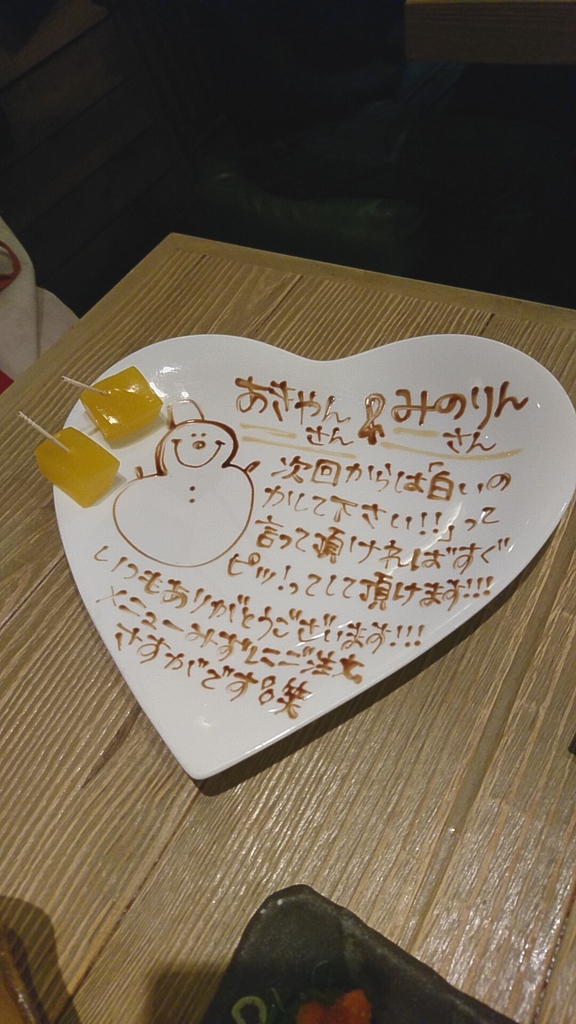 あきやん & みのりん
さん さん
次回からは「白いの
かして下さい!!」って
言って頂ければすぐ
ピッ!ってして頂けます!!!
いつもありがとうございます!!!
メニューみずしにご注文
さすがです 笑